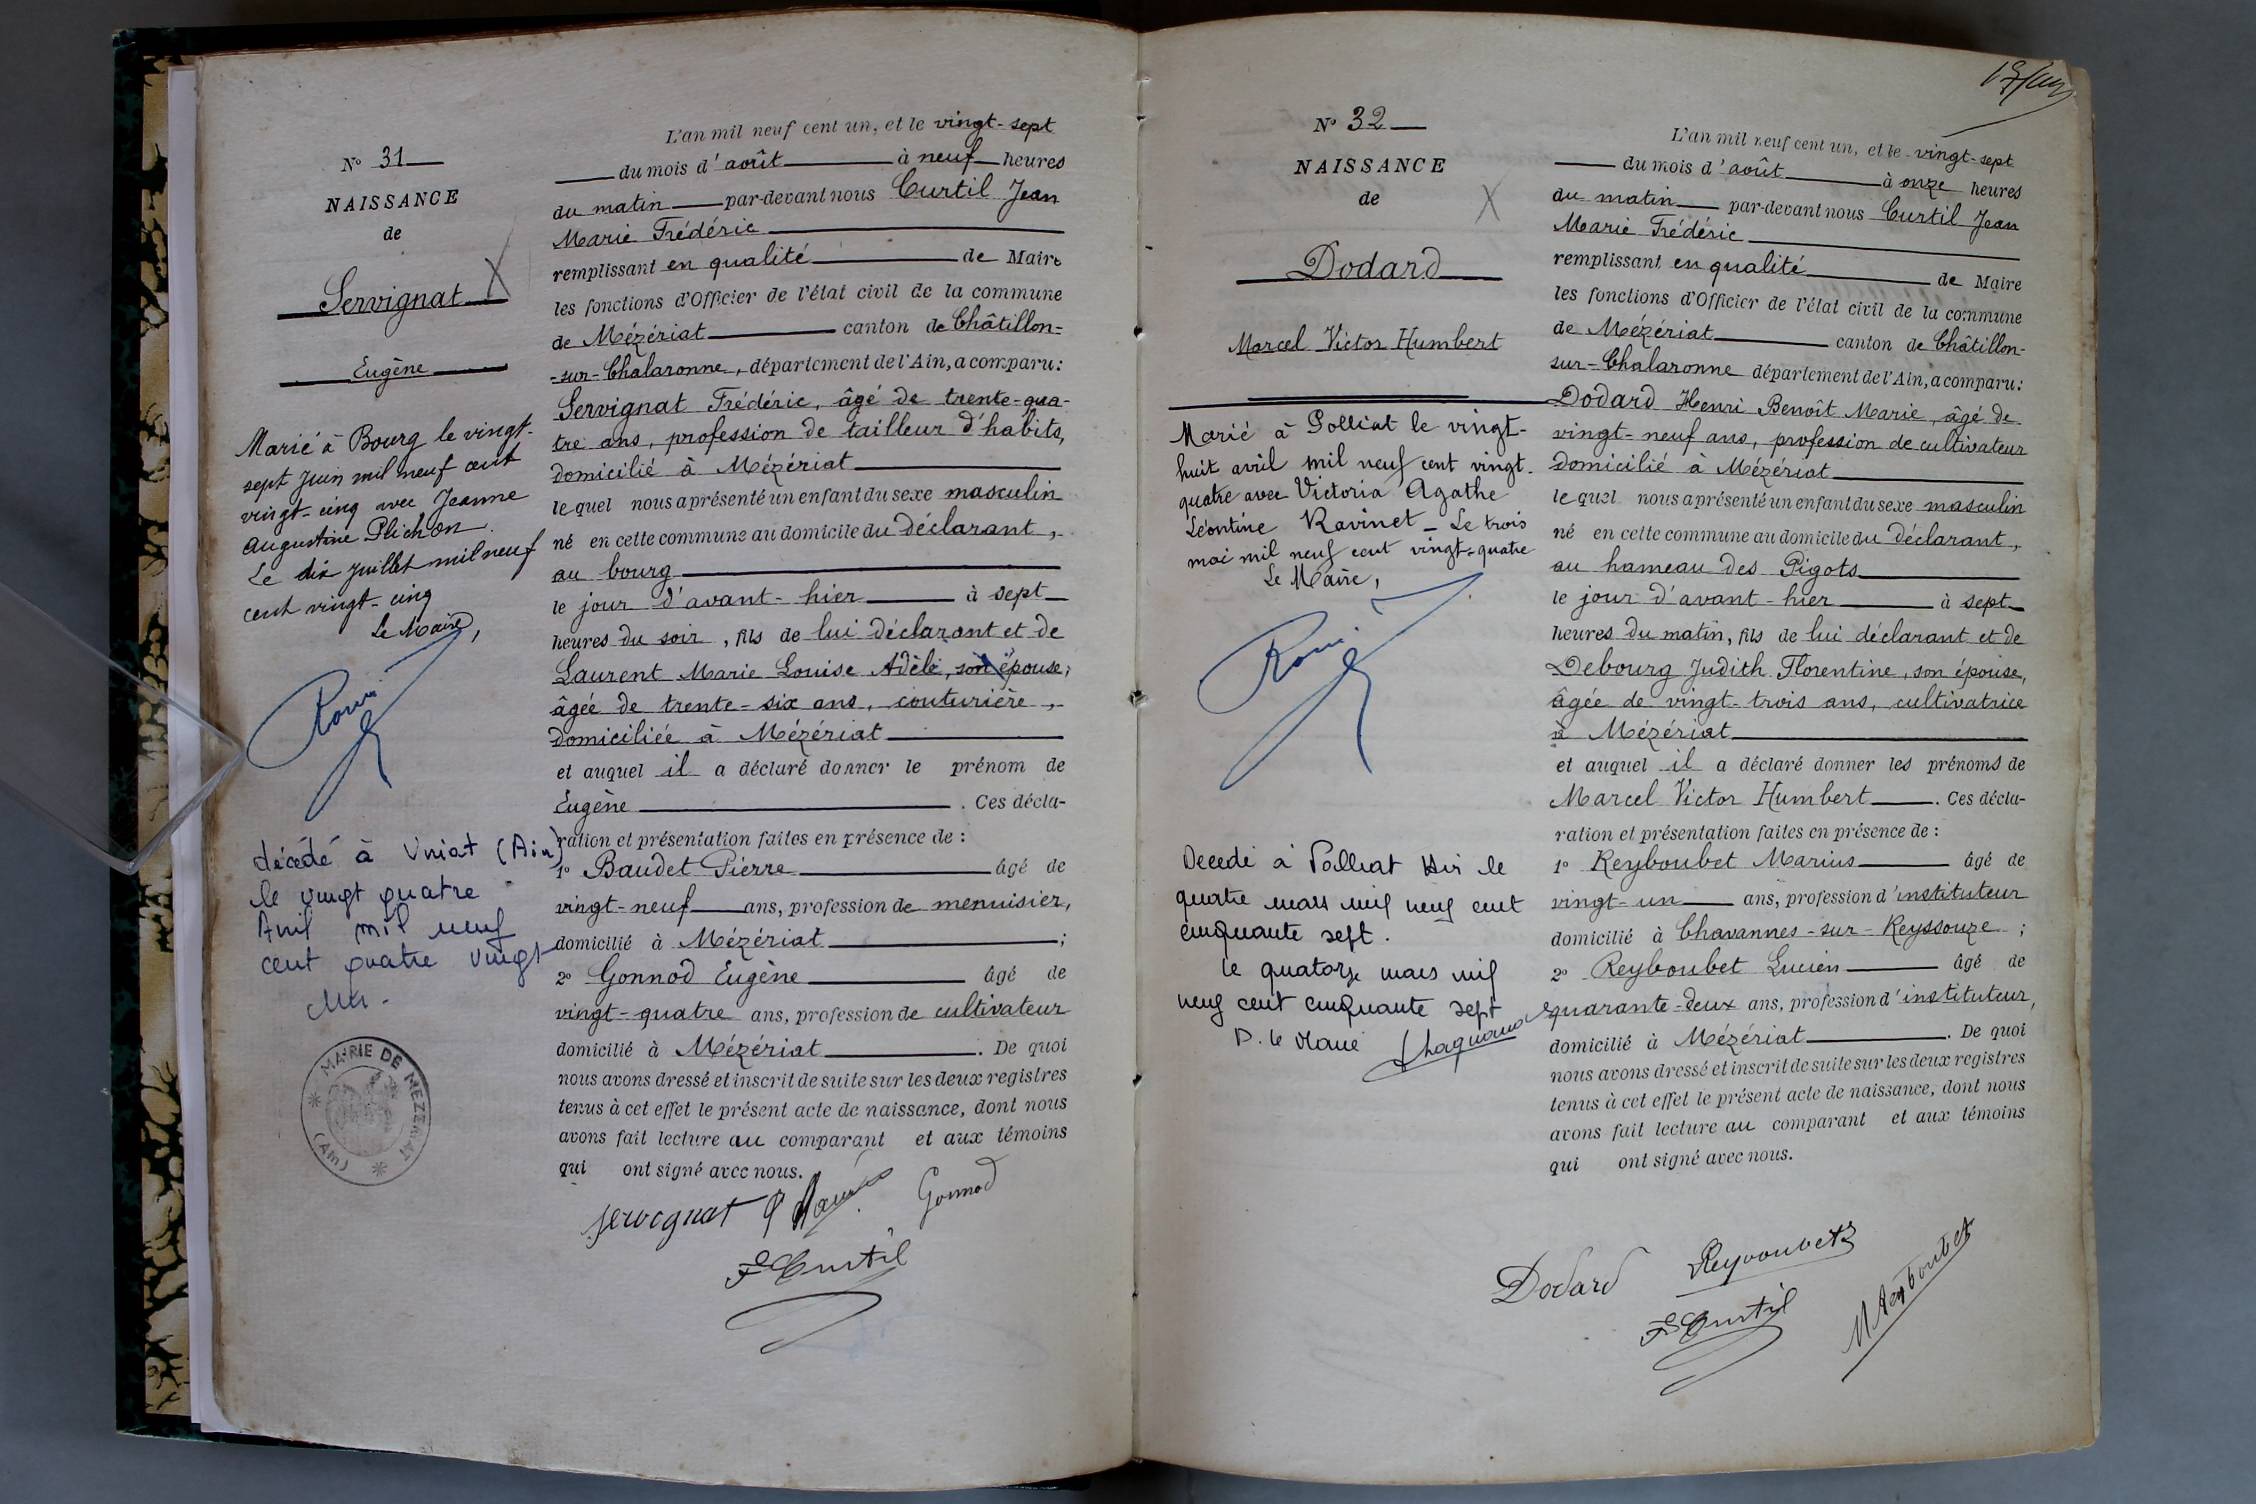 N° 31
NAISSANCE
de
Servignat
Eugène
Marié à Bourg le vingt-
sept Juin mil neuf cent
vingt-cinq avec Jeanne
Augustine Plichon.
Le dix Juillet mil neuf
cent vingt-cinq
Le Maire,
décédé à Viriat (Ain)
le vingt quatre
Avril mil neuf
cent quatre vingt
MAIRIE DE MEZERIAT
(Ain)
L'an mil neuf cent un, et le vingt-sept
du mois d'août à neuf heures
du matin par-devant nous Curtil Jean
Marie Frédéric
remplissant en qualité de Maire
les fonctions d'Officier de l'état civil de la commune
de Mézériat canton de Châtillon-
-sur-Chalaronne, département de l'Ain, a comparu:
Servignat Frédéric, âgé de trente-qua-
tre ans, profession de tailleur d'habits,
domicilié à Mézériat
lequel nous a présenté un enfant du sexe masculin
né en cette commune au domicile du déclarant,
au bourg
le jour d'avant-hier à sept
heures du soir, fils de lui déclarant et de
Laurent Marie Louise Adèle, son épouse,
âgée de trente-six ans, couturière,
domiciliée à Mézériat
et auquel il a déclaré donner le prénom de
Eugène. Ces décla-
ration et présentation faites en présence de :
1° Baudet Pierre âgé de
vingt-neuf ans, profession de menuisier,
domicilié à Mézériat ;
2° Gonnod Eugène âgé de
vingt-quatre ans, profession de cultivateur
domicilié à Mézériat. De quoi
nous avons dressé et inscrit de suite sur les deux registres
tenus à cet effet le présent acte de naissance, dont nous
avons fait lecture au comparant et aux témoins
qui ont signé avec nous.
Servignat Gonnod
F Curtil
N° 32
NAISSANCE
de
Dodard
Marcel Victor Humbert
Marié à Polliat le vingt-
huit avril mil neuf cent vingt-
quatre avec Victoria Agathe
Léontine Ravinet - Le trois
mai mil neuf cent vingt-quatre
Le Maire,
Décédé à Polliat Ain le
quatre mars mil neuf cent
cinquante sept.
Le quatorze mars mil
neuf cent cinquante sept
P. le Maire
L'an mil neuf cent un, et le vingt-sept
du mois d'août à onze heures
du matin par-devant nous Curtil Jean
Marie Frédéric
remplissant en qualité de Maire
les fonctions d'Officier de l'état civil de la commune
de Mézériat canton de Châtillon-
sur-Chalaronne département de l'Ain, a comparu:
Dodard Henri Benoît Marie, âgé de
vingt-neuf ans, profession de cultivateur
domicilié à Mézériat
lequel nous a présenté un enfant du sexe masculin
né en cette commune au domicile du déclarant,
au hameau des Pigots
le jour d'avant-hier à sept
heures du matin, fils de lui déclarant et de
Debourg Judith Florentine, son épouse,
âgée de vingt-trois ans, cultivatrice
à Mézériat
et auquel il a déclaré donner les prénoms de
Marcel Victor Humbert. Ces décla-
ration et présentation faites en présence de :
1° Reyboubet Marius âgé de
vingt-un ans, profession d'instituteur
domicilié à Chavannes-sur-Reyssouze ;
2° Reyboubet Lucien âgé de
quarante-deux ans, profession d'instituteur,
domicilié à Mézériat. De quoi
nous avons dressé et inscrit de suite sur les deux registres
tenus à cet effet le présent acte de naissance, dont nous
avons fait lecture au comparant et aux témoins
qui ont signé avec nous.
Dodard Reyboubet
F Curtil M Reyboubet